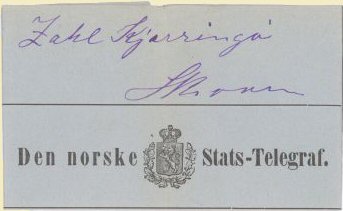 Zahl Kjærringø
Skroven
Den norske Stats-Telegraf.